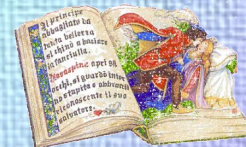 Il principe
abbagliato da
tanta bellezza
si chinò a baciare
la fanciulla.
Rosaspina aprì gli
occhi, si guardò intor
no rapita e abbracciò
riconoscente il suo
salvatore.